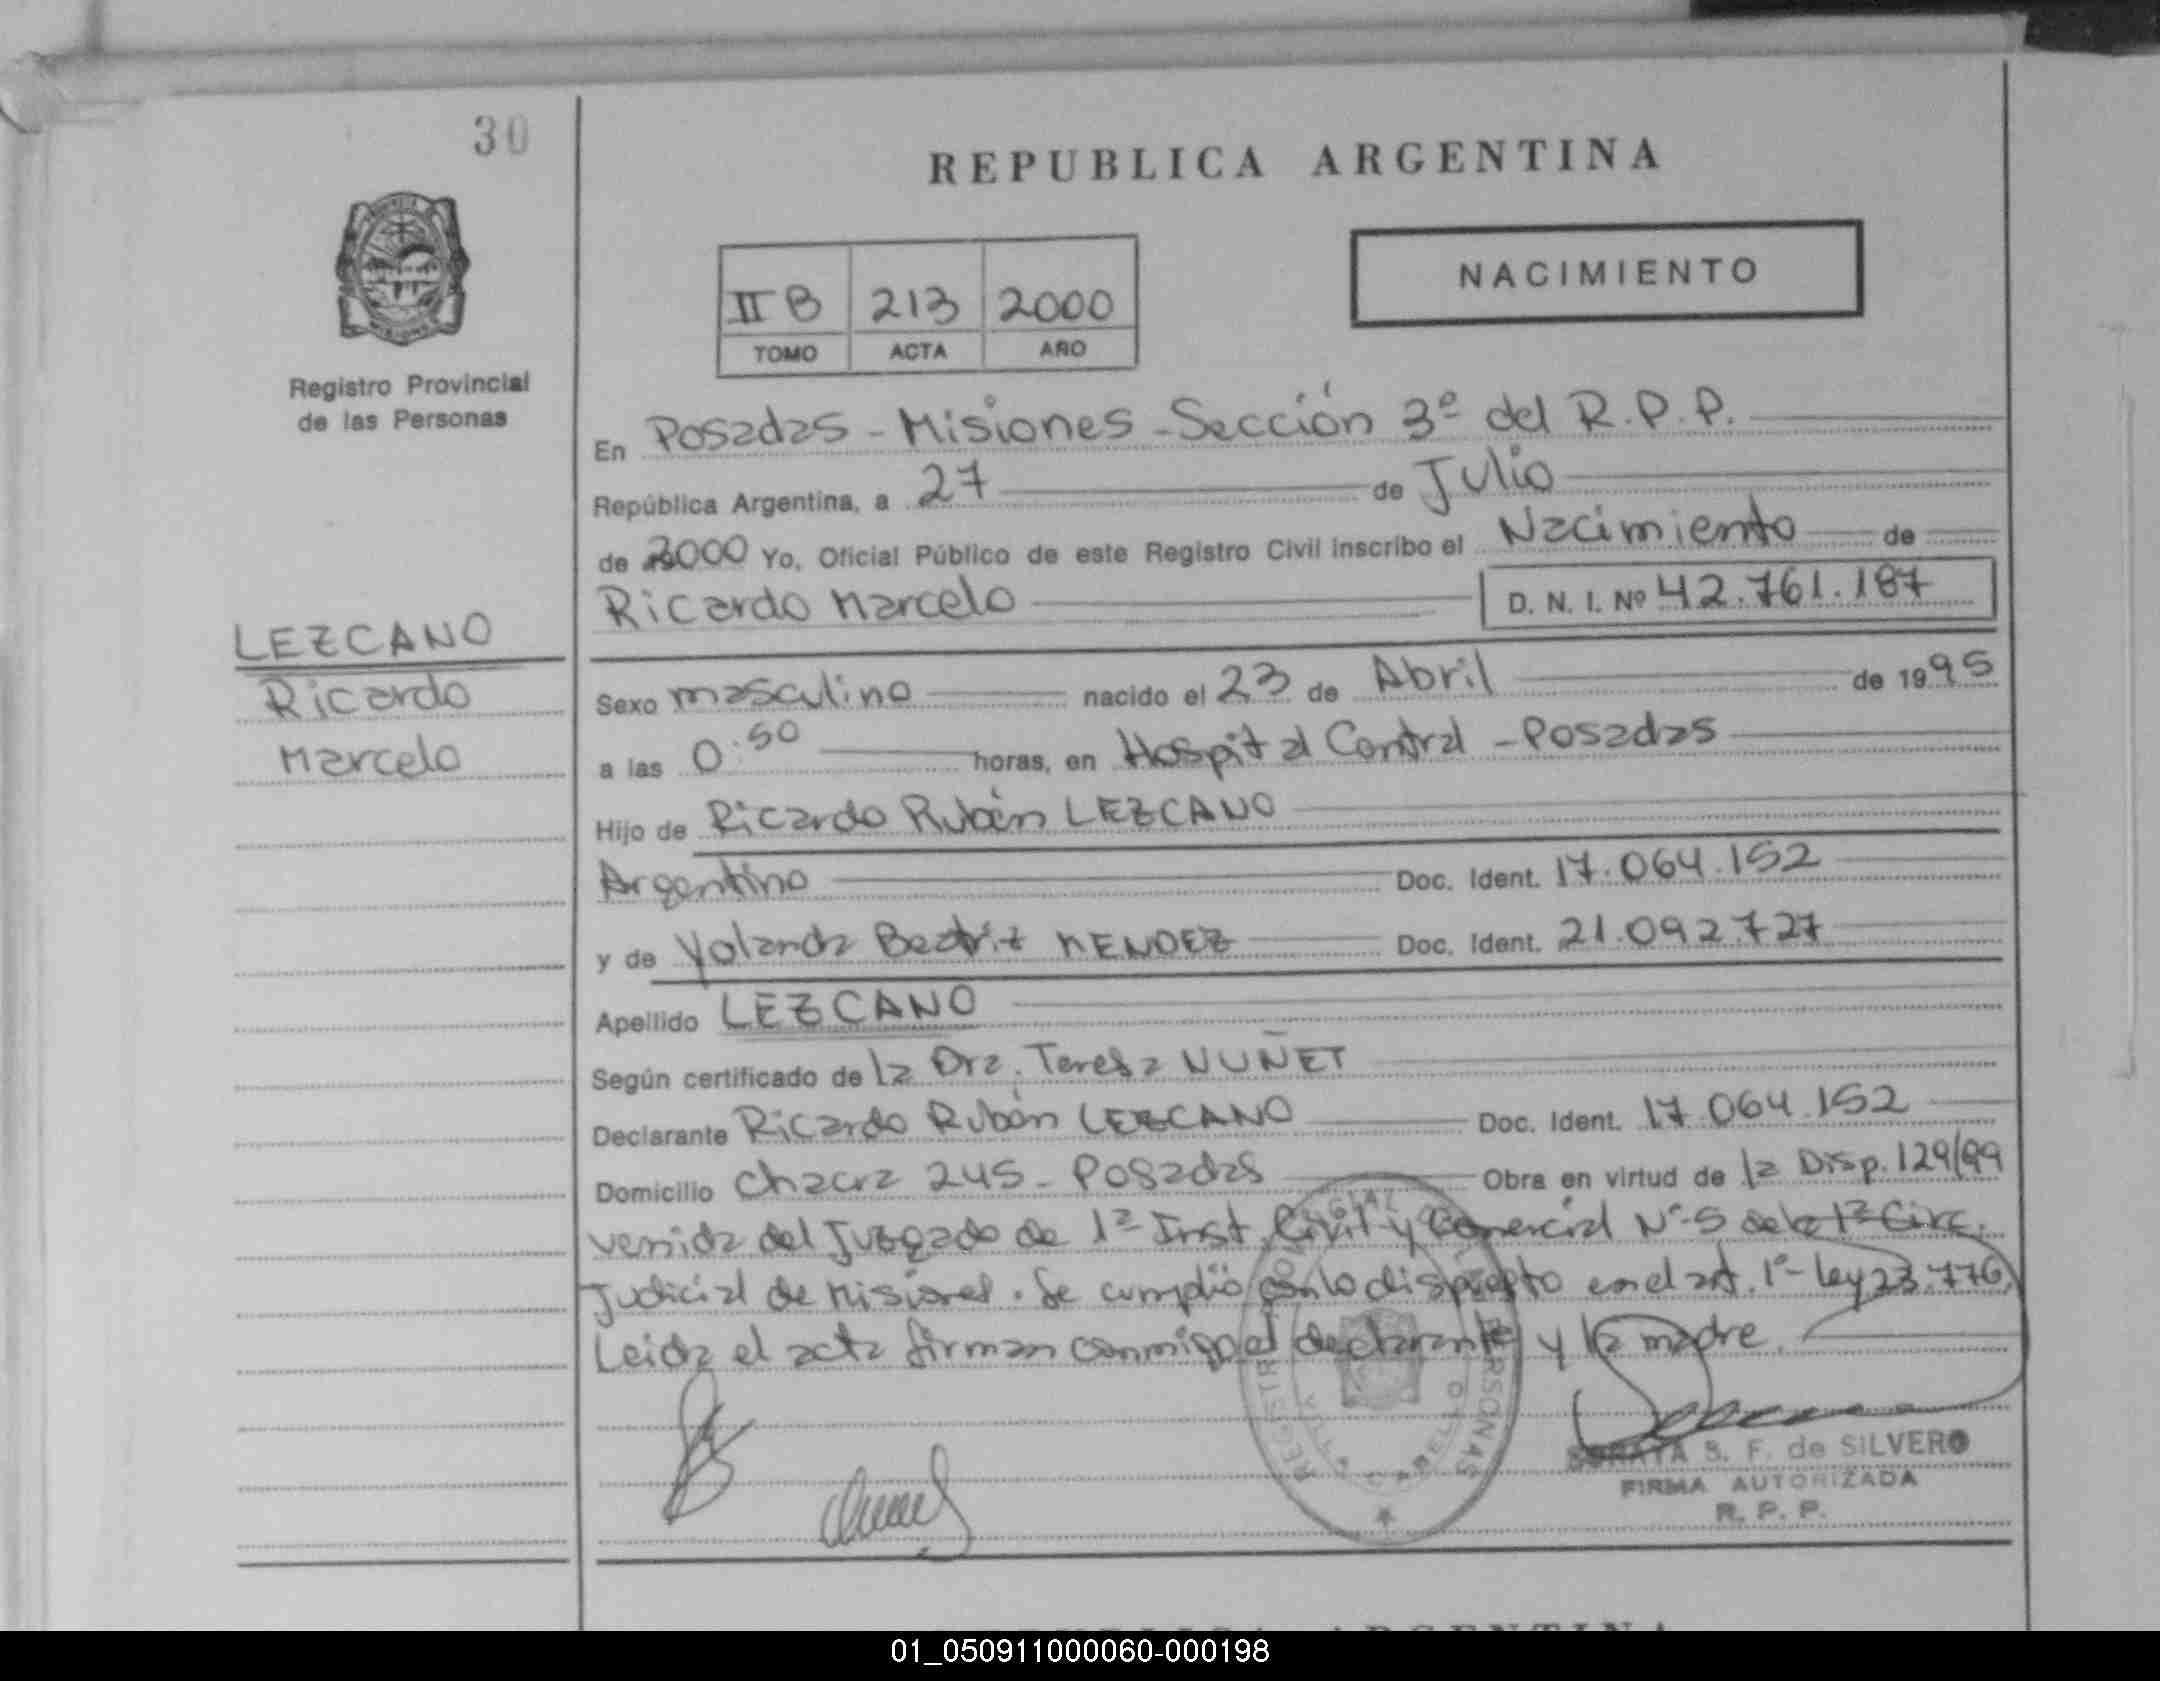 30
REPUBLICA ARGENTINA
NACIMIENTO
II B 213 2000
TOMO ACTA AÑO
Registro Provincial
de las Personas
En Posadas - Misiones - Sección 3º del R.P.P.
República Argentina, a 27 de Julio
de 2000 Yo, Oficial Público de este Registro Civil inscribo el Nacimiento de
Ricardo Marcelo D. N. I. Nº 42.761.187
LEZCANO
Ricardo
Marcelo
Sexo masculino nacido el 23 de Abril de 1995
a las 0:50 horas, en Hospital Central - Posadas
Hijo de Ricardo Rubén LEZCANO
Argentino Doc. Ident. 17.064.152
y de Yolanda Beatriz MENDEZ Doc. Ident. 21.092.727
Apellido LEZCANO
Según certificado de la Dra. Teresa NUÑET
Declarante Ricardo Rubén LEZCANO Doc. Ident. 17.064.152
Domicilio Chacra 245 - Posadas Obra en virtud de la Disp. 129/99
venida del Juzgado de 1ª Inst. Civil y Comercial Nº 5 de la 1ª Circ.
Judicial de Misiones. Se cumplió con lo dispuesto en el art. 1º - Ley 23.776
Leida el acta firman conmigo el declarante y la madre.
SORAYA S. F. de SILVERO
FIRMA AUTORIZADA
R. P. P.
01_050911000060-000198